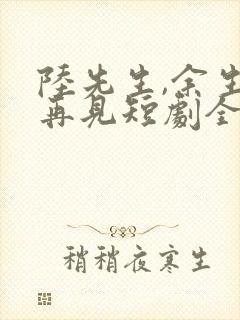 陸先生,余生
再見短劇全
稍稍夜寒生